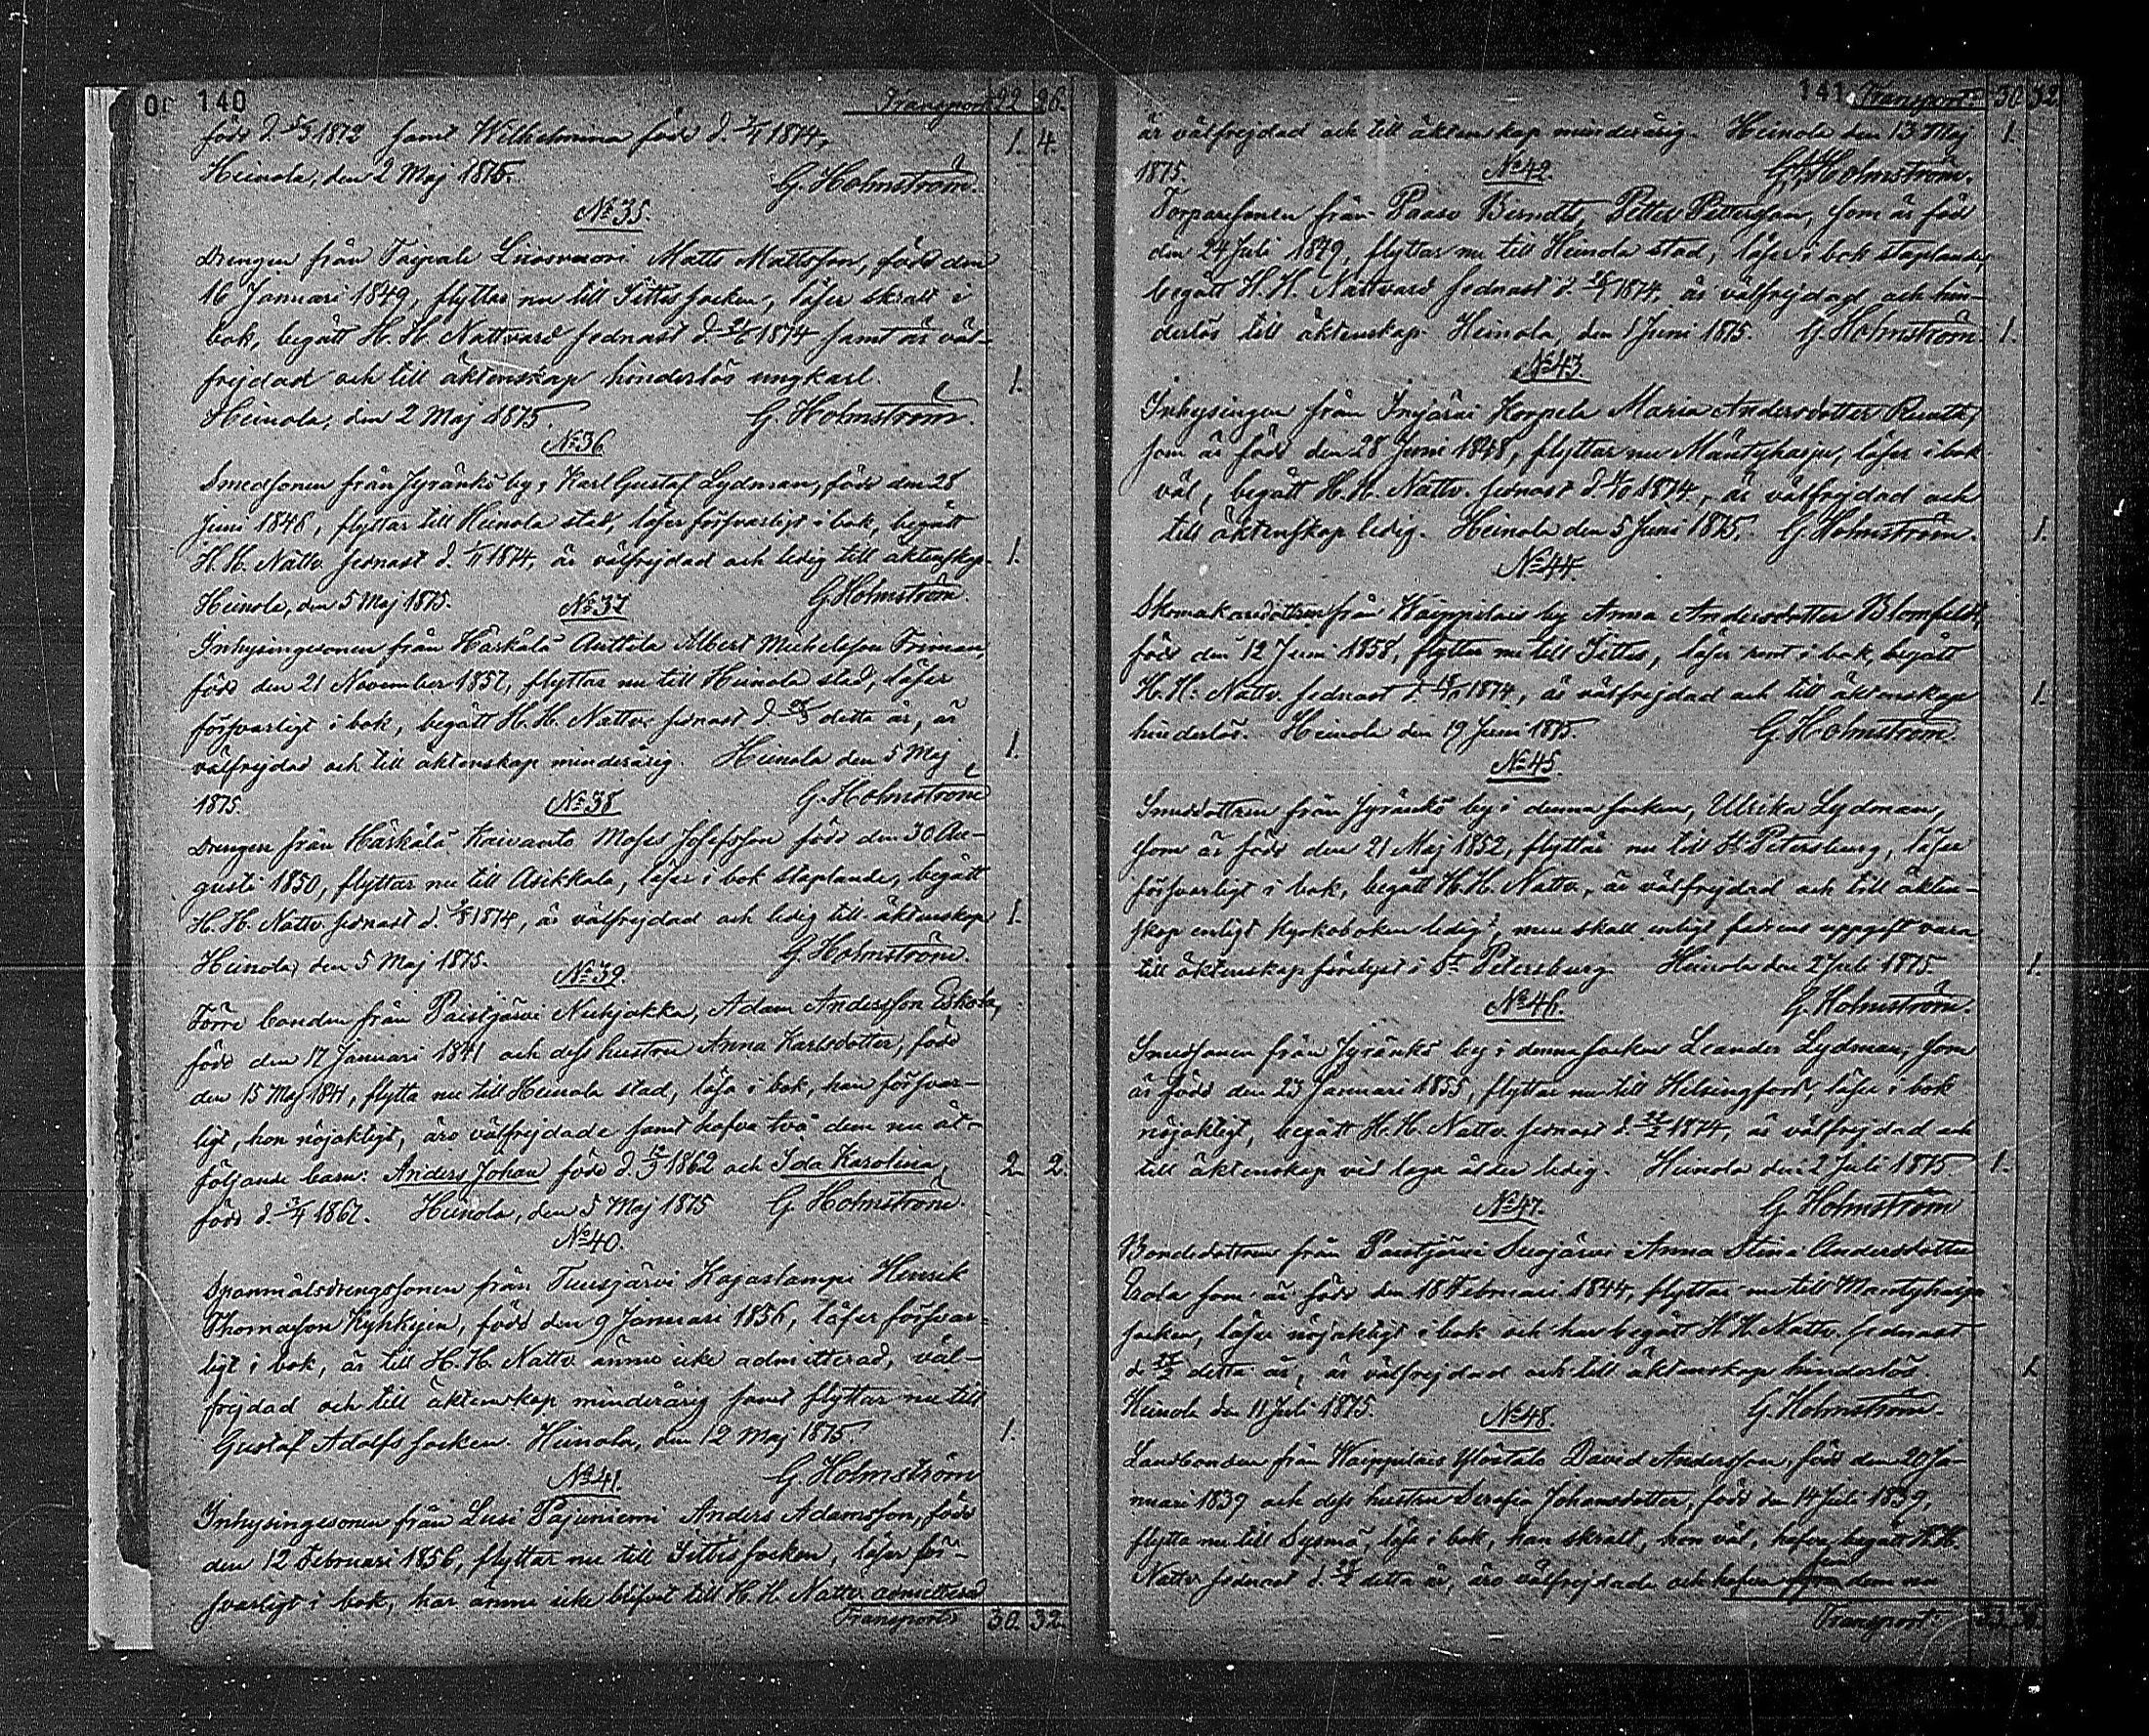 140
Transport 22 26.
född d. 5/3 1872 samt Wilhelmina född d. 7/1 1874, 1. 4.
Heinola, den 2 Maj 1875. G. Holmström.
No 35.
Drengen från Taipale Linosvuori Matts Mattsson, född den
16 Januari 1849, flyttar nu till Sittis socken, läser skralt i
bok, begått H. H. Nattvard sednast d. 1874 samt är väl-
frejdad och till äktenskap hinderlös ungkarl. 1.
Heinola, den 2 Maj 1875. G. Holmström.
No 36
Smedsonen från Jyränkö by, Karl Gustaf Lydman, född den 28
Juni 1846, flyttar till Heinola stad, läser försvarligt i bok, begått
H. H. Nattv. sednast d. 1/11 1874, är välfrejdad och ledig till äktenskap. 1.
Heinola, den 5 Maj 1875. No 37 G. Holmström.
Inhysingesonen från Härkälä Anttila Albert Michelsson Friman,
född den 21 November 1857, flyttar nu till Heinola stad, läser
försvarligt i bok, begått H. H. Nattv. sednast d. detta år, är
välfrejdad och till äktenskap minderårig. Heinola den 5 Maj 1.
1875. No 38 G. Holmström
Drengen från Härkälä Kaivanto Moses Josefsson född den 30 Au-
gusti 1850, flyttar nu till Asikkala, läser i bok staplande, begått
H. H. Nattv. sednast d. 1874, är välfrejdad och ledig till äktenskap 1.
Heinola, den 5 Maj 1875. No 39. G. Holmström.
Förre bonden från Paistjärvi Niehjokka, Adam Andersson Eskola,
född den 17 Januari 1841 och dess hustru Anna Karlsdotter, född
den 15 Maj 1841, flytta nu till Heinola stad, läsa i bok, han försvar-
ligt, hon nöjaktigt, äro välfrejdade samt hafva två dem nu åt-
följande barn: Anders Johan född d. 1862 och Ida Karolina, 2. 2.
född d. 1867. Heinola, den 5 Maj 1875 G. Holmström.
No 40.
Spanmålsdrengssonen från Tuusjärvi Kajaslampi Henrik
Thomasson Kyhkyin, född den 9 Januari 1856, läser försvar-
ligt i bok, är till H. H. Nattv. ännu icke admitterad, väl-
frejdad och till äktenskap minderårig samt flyttar nu till
Gustaf Adolfs socken. Heinola, den 12 Maj 1875 1.
No 41. G. Holmström
Inhysingesonen från Lusi Pajuniemi Anders Adamsson, född
den 12 Februari 1856, flyttar nu till Sittis socken, läser för-
svarligt i bok, har ännu icke blifvit till H. H. Nattv. admitterad
Transport 30. 32.
141 Transport 30 32.
är välfrejdad och till äktenskap minderårig. Heinola den 13 Maj 1.
1875. No 42. G. Holmström.
Torparesonen från Paaso Berndts, Petter Pettersson, som är född
den 24 Juli 1849, flyttar nu till Heinola stad, läser i bok staplande,
begått H. H. Nattvard sednast d. 1874, är välfrejdad och hin-
derlös till äktenskap. Heinola, den 1 Juni 1875. G. Holmström. 1.
No 43.
Inhysingen från Imjärvi Korpela Maria Andersdotter Ruutti,
som är född den 28 Juni 1848, flyttar nu Mäntyharju, läser i bok
väl, begått H. H. Nattv. sednast d. 1874, är välfrejdad och
till äktenskap ledig. Heinola den 5 Juni 1875. G. Holmström. 1.
No 44.
Skomakaredottren från Waippilais by Anna Andersdotter Blomfeldt,
född den 12 Juni 1858, flyttar nu till Sittis, läser rent i bok, begått
H. H. Nattv. sednast d. 1874, är välfrejdad och till äktenskap 1.
hinderlös. Heinola den 19 Juni 1875. G. Holmström.
No 45.
Smeddottren från Jyränkö by i denna socken, Ulrika Lydman,
som är född den 21 Maj 1852, flyttar nu till St Petersburg, läser
försvarligt i bok, begått H. H. Nattv., är välfrejdad och till äkten-
skap enligt kyrkoboken ledig, men skall enligt fadrens uppgift vara
till äktenskap förelyst i St Petersburg. Heinola den 2 Juli 1875. 1.
No 46. G. Holmström.
Smedsonen från Jyränkö by i denna socken Leander Lydman, som
är född den 23 Januari 1855, flyttar nu till Helsingfors, läser i bok
nöjaktigt, begått H. H. Nattv. sednast d. 22/2 1874, är välfrejdad och
till äktenskap vid laga ålder ledig. Heinola den 2 Juli 1875 1.
No 47. G. Holmström
Bondedottren från Paistjärvi Suojärvi Anna Stina Andersdotter
Erola som är född den 18 Februari 1844, flyttar nu till Mäntyharju
socken, läser nöjaktigt i bok och har begått H. H. Nattv. sednast
d. detta år, är välfrejdad och till äktenskap hinderlös. 1.
Heinola den 11 Juli 1875. No 48. G. Holmström.
Landbonden från Waippilais Ylöstalo David Andersson, född den 20 Ja-
nuari 1839 och dess hustru Serafia Johansdotter, född den 14 Juli 1839,
flytta nu till Sysmä, läsa i bok, han skralt, hon väl, hafva begått H. H.
Nattv. sednast d. detta år, äro välfrejdade och hafva fem dem nu
Transport